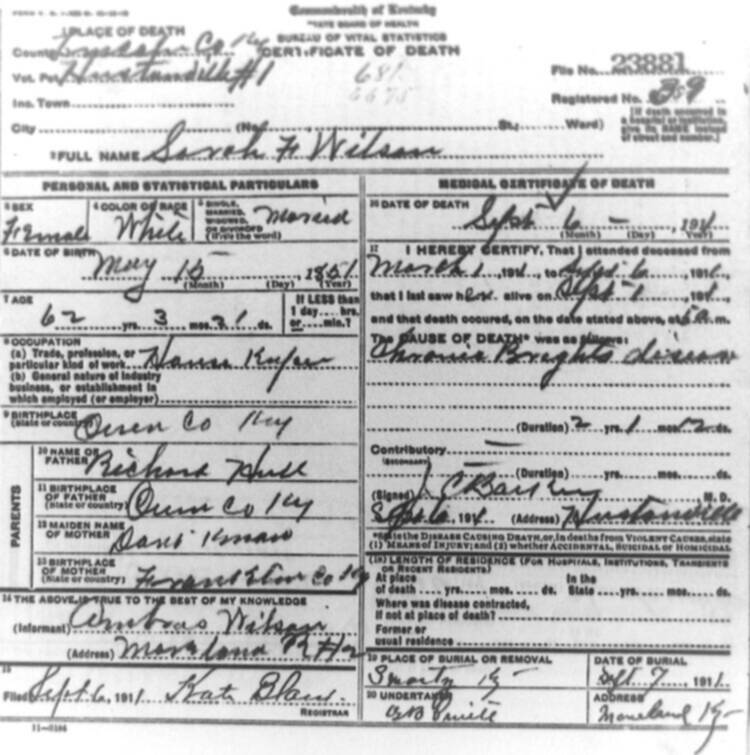 Commonwealth of Kentucky
STATE BOARD OF HEALTH
BUREAU OF VITAL STATISTICS
CERTIFICATE OF DEATH
1 PLACE OF DEATH
County Lincoln Co Ky
Vot. Pct. Hustonville #1
Inc. Town
City (No. St.; Ward)
File No. 23881
Registered No. 39
[If death occurred in
a hospital or institution,
give its NAME instead
of street and number.]
2 FULL NAME Sarah F Wilson
PERSONAL AND STATISTICAL PARTICULARS
3 SEX
Female
4 COLOR OR RACE
White
5 SINGLE,
MARRIED,
WIDOWED,
OR DIVORCED
(Write the word)
Married
6 DATE OF BIRTH
May 15 1851
(Month) (Day) (Year)
7 AGE
62 yrs. 3 mos. 21 ds.
If LESS than
1 day.... hrs.
or.... min.?
8 OCCUPATION
(a) Trade, profession, or
particular kind of work House Keeper
(b) General nature of industry
business, or establishment in
which employed (or employer)
9 BIRTHPLACE
(State or country) Owen Co Ky
PARENTS
10 NAME OF
FATHER Richard
11 BIRTHPLACE
OF FATHER
(State or country) Owen Co Ky
12 MAIDEN NAME
OF MOTHER
13 BIRTHPLACE
OF MOTHER
(State or country) Co Ky
14 THE ABOVE IS TRUE TO THE BEST OF MY KNOWLEDGE
(Informant) Wilson
(Address) Moreland
15
Filed Sept 6, 1911 Kate
REGISTRAR
MEDICAL CERTIFICATE OF DEATH
16 DATE OF DEATH
Sept 6 191
(Month) (Day) (Year)
17 I HEREBY CERTIFY, That I attended deceased from
March 1, 191 to Sept 6, 191
that I last saw her alive on Sept 1, 191
and that death occured, on the date stated above, at 5 a.m.
The CAUSE OF DEATH* was as follows:
Chronic Brights disease
(Duration) 2 yrs. 1 mos. 12 ds.
Contributory
(SECONDARY)
(Duration) yrs. mos. ds.
(Signed) M. D.
Sept 6, 191 (Address) Hustonville
*State the DISEASE CAUSING DEATH, or, in deaths from VIOLENT CAUSES, state
(1) MEANS OF INJURY; and (2) whether ACCIDENTAL, SUICIDAL or HOMICIDAL
18) LENGTH OF RESIDENCE (FOR HOSPITALS, INSTITUTIONS, TRANSIENTS
OR RECENT RESIDENTS)
At place
of death yrs. mos. ds.
In the
State yrs. mos. ds.
Where was disease contracted,
if not at place of death?
Former or
usual residence
19 PLACE OF BURIAL OR REMOVAL
Ky
DATE OF BURIAL
Sept 7, 1911
20 UNDERTAKER
ADDRESS
Moreland Ky